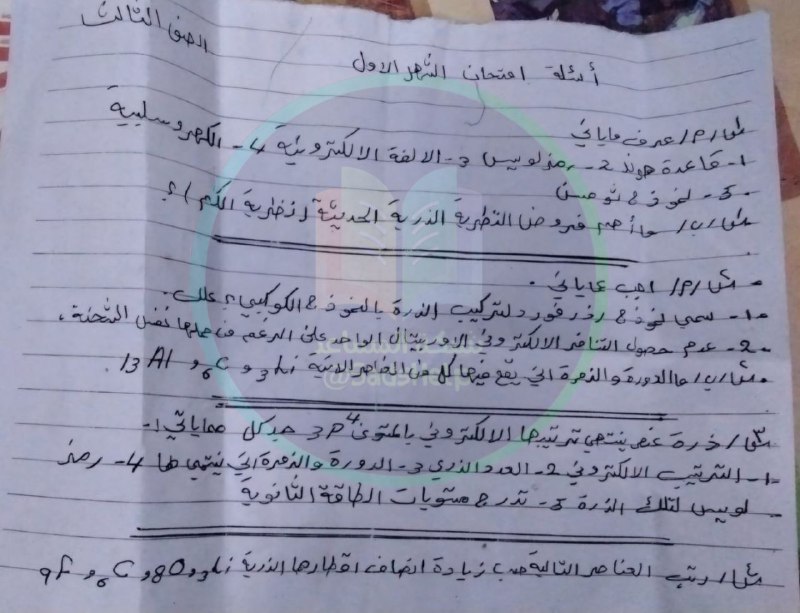 الصف الثالث
أسئلة امتحان الشهر الاول
س١/ م/ عرف ماياتي
1- قاعدة هوند 2- رمز لويس 3- الالفة الالكترونية 4- الكهروسلبية
5- نموذج ثومسن
س١/ ب/ ما أهم فروض النظرية الذرية الحديثة (نظرية الكم)؟
س٢/ م/ اجب عماياتي.
1- سمي نموذج رذرفورد لتركيب الذرة بالنموذج الكوكبي؟ علل.
2- عدم حصول التنافر الالكتروني في الاوربيتال الواحد على الرغم من حملها نفس الشحنة.
س٢/ ب/ ما الدورة والزمرة التي يقع فيها كل من العناصر الاتية 3Li و 6C و 13Al.
س٣/ ذرة عنصر ينتهي ترتيبها الالكتروني بالمستوى 3P⁴ جد كل مماياتي:-
1- الترتيب الالكتروني 2- العدد الذري 3- الدورة والزمرة التي ينتمي لها 4- رمز
لويس لتلك الذرة 5- تدرج مستويات الطاقة الثانوية
س٤/ رتب العناصر التالية حسب زيادة انصاف اقطارها الذرية 3Li و 8O و 6C و 9F
شبكة الساعد
@SadsHelp